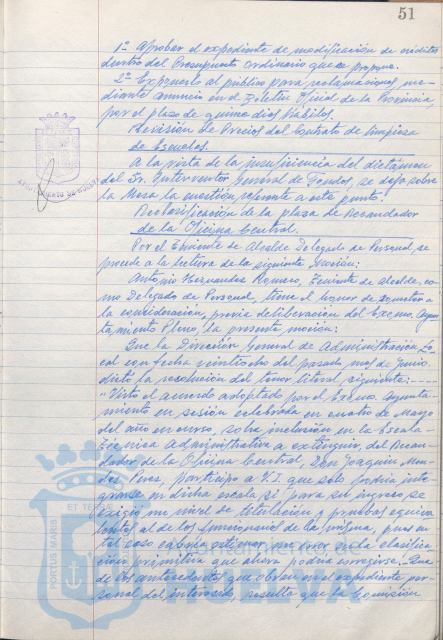 51
1º Aprobar el expediente de modificación de créditos
dentro del Presupuesto ordinario que se propone.
2º Exponerlo al público para reclamaciones, me-
diante anuncio en el Boletín Oficial de la Provincia,
por el plazo de quince días hábiles.
Revisión de Precios del Contrato de limpieza
de Escuelas.
A la vista de la insuficiencia del dictamen
del Sr. Interventor General de Fondos, se dejó sobre
la Mesa la cuestión referente a este punto.
Reclasificación de la plaza de Recaudador
de la Oficina Central.
Por el Teniente de Alcalde Delegado de Personal, se
procede a la lectura de la siguiente moción:
Antonio Hernández Romero, Teniente de Alcalde, co-
mo Delegado de Personal, tiene el honor de someter a
la consideración, previa deliberación del Excmo. Ayun-
tamiento Pleno, la presente moción:
Que la Dirección General de Administración Lo-
cal con fecha veintiocho del pasado mes de Junio
dictó la resolución del tenor literal siguiente:
"Visto el acuerdo adoptado por el Excmo. Ayunta-
miento en sesión celebrada en cuatro de Marzo
del año en curso, sobre inclusión en la Escala
Técnica Administrativa a extinguir, del Recau-
dador de la Oficina Central, Don Joaquín
participo a V.I. que sólo podría inte-
grarse en dicha escala si para su ingreso se
exigió un nivel de titulación y pruebas equiva-
lentes al de los funcionarios de la misma, pues en
tal caso cabría estimar un error en la clasifica-
ción primitiva que ahora podría corregirse. Que
de los antecedentes que obran en el expediente per-
sonal del interesado, resulta que la Comisión
AYUNTAMIENTO DE HUELVA
PORTUS MARIS
ET TERRAE
Ayuntamiento de
HUELVA